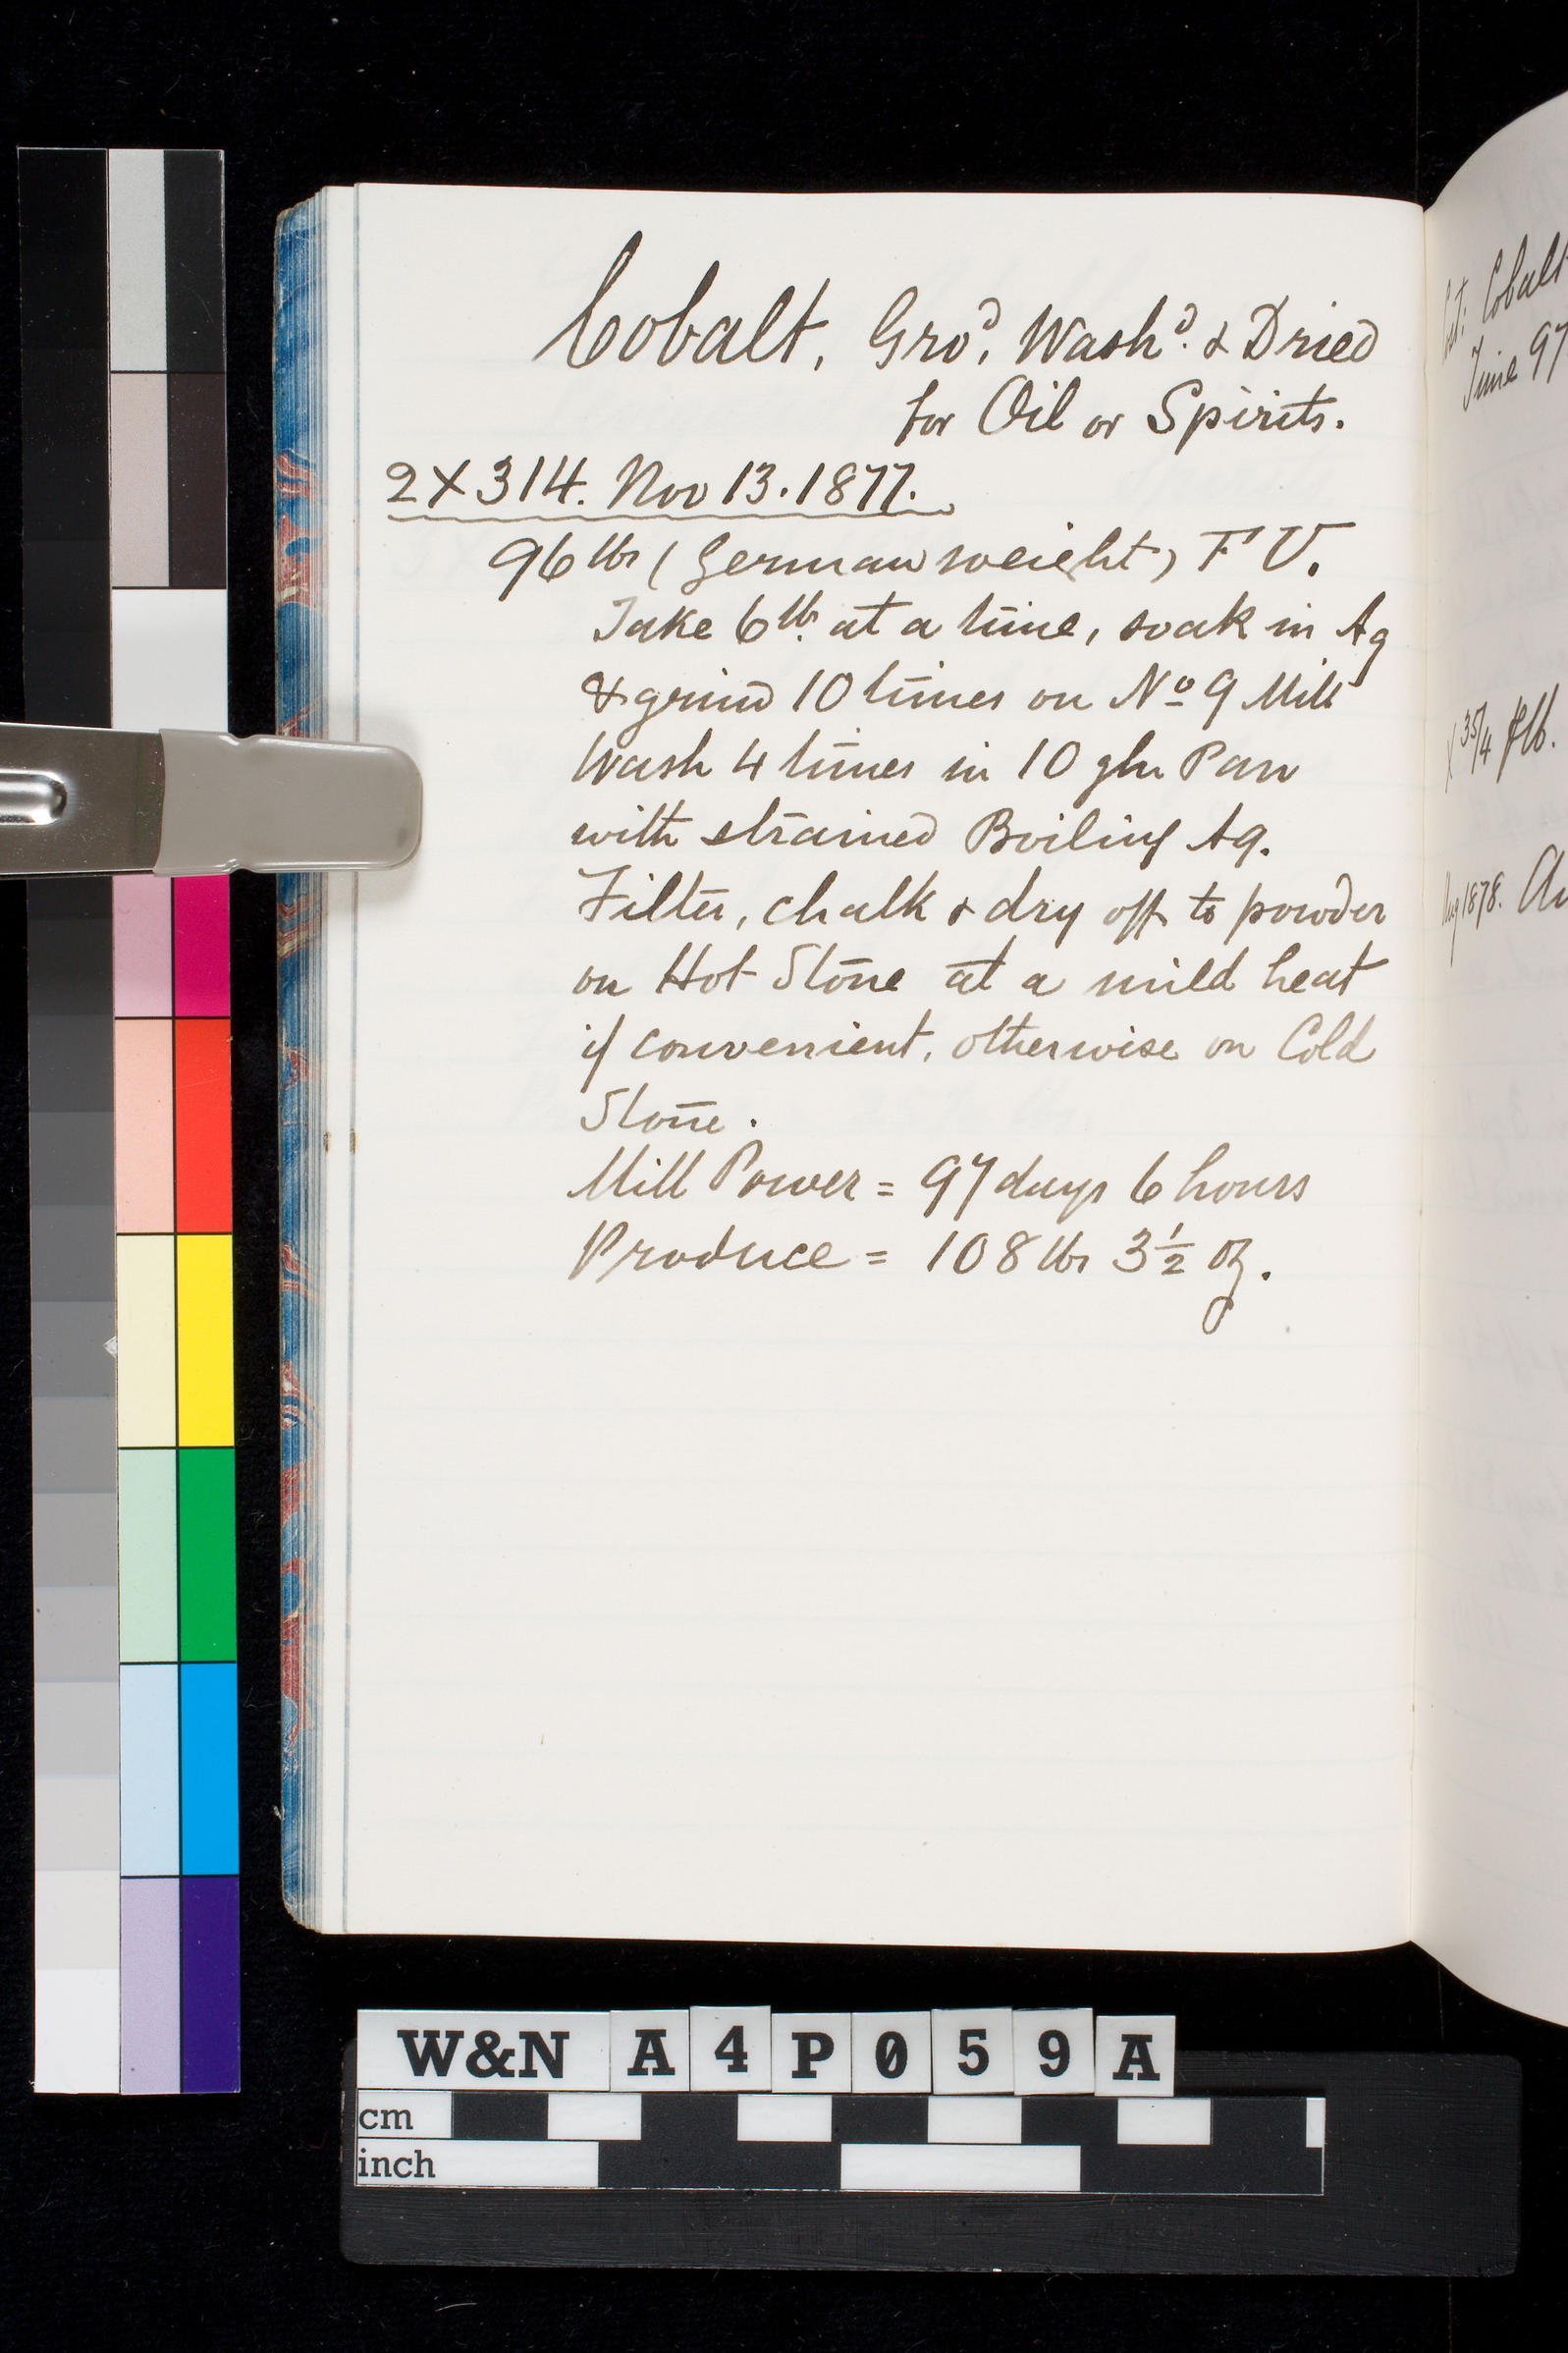 Cobalt, Gro.d, Wash.d & Dried
for Oil or Spirits.
2X314. Nov 13. 1877.
96 lbs (German weight) F V.
Take 6 lb. at a time, soak in Aq
& grind 10 times on No 9 Mill
Wash 4 times in 10 gln Pan
with strained Boiling Aq.
Filter, chalk & dry off to powder
on Hot Stone at a mild heat
if convenient, otherwise on Cold
Stone.
Mill Power = 97 days 6 hours
Produce = 108 lbs 3½ oz.
Cobalt
Time 97
X 35/4
Aug 1878.
W&N A4P059A
cm
inch